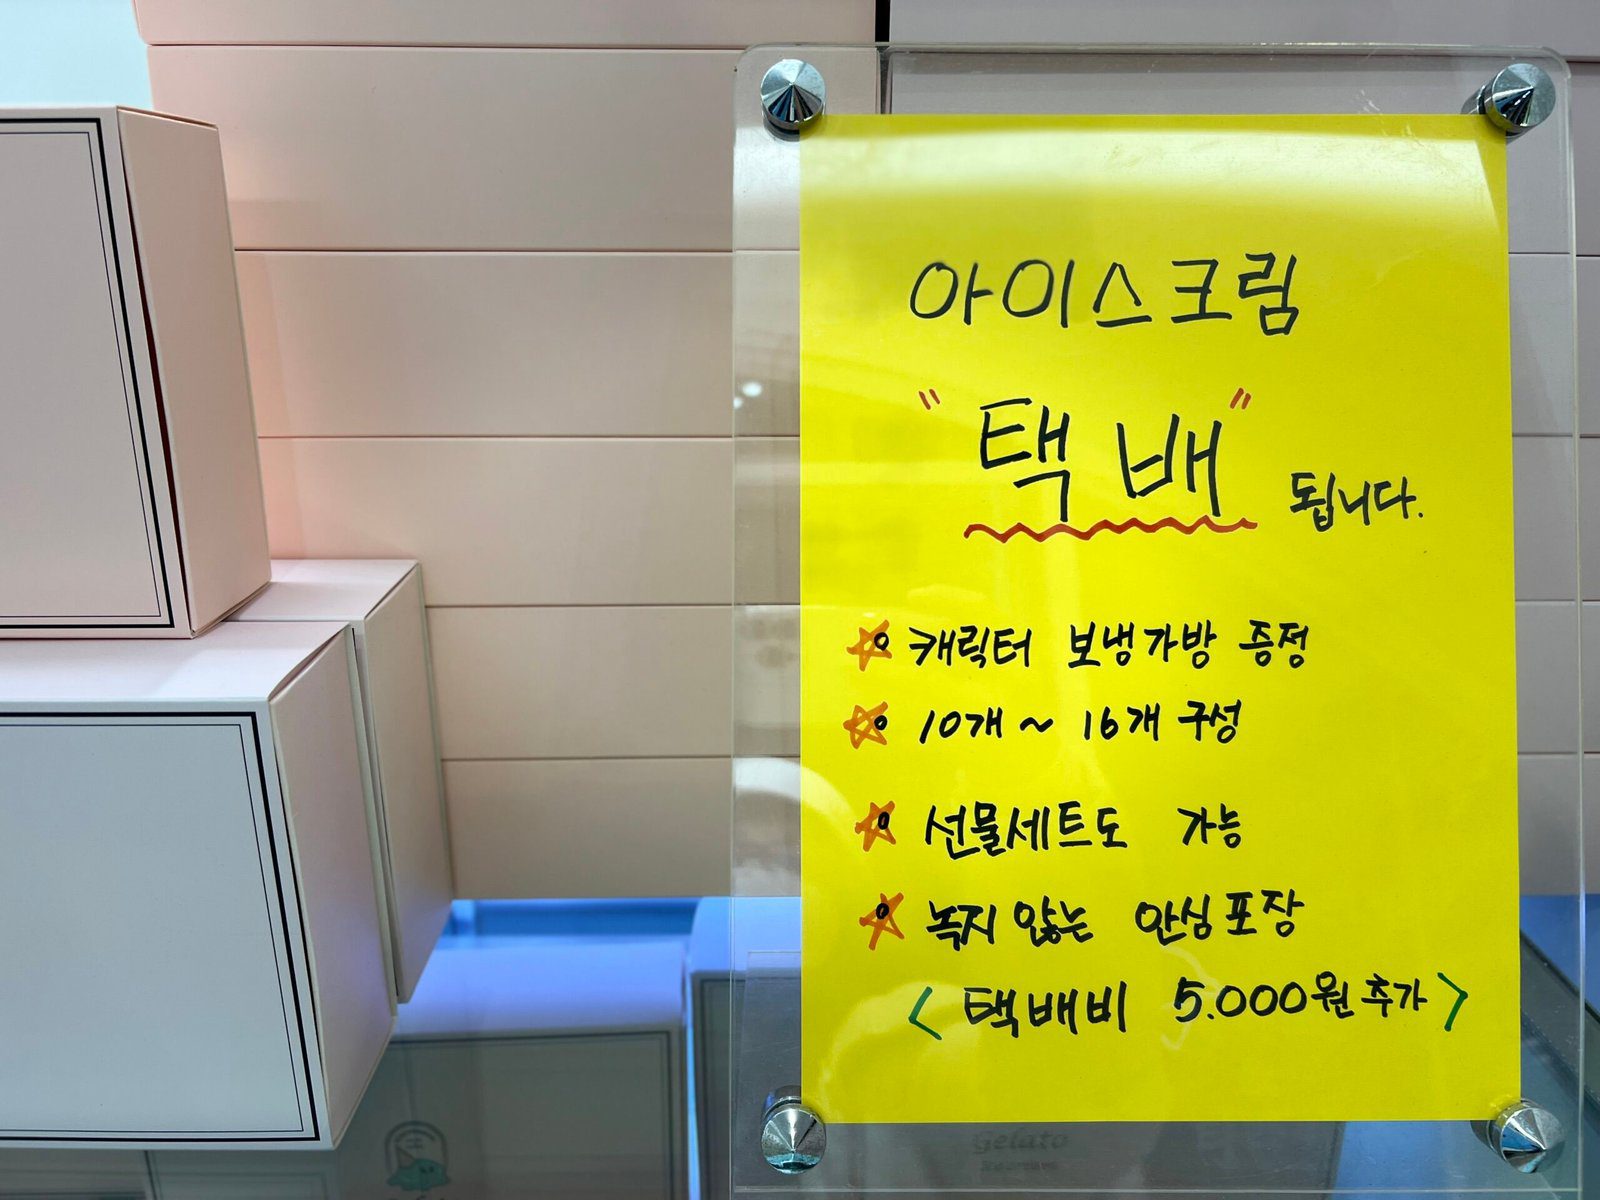 아이스크림
"택배" 됩니다.
캐릭터 보냉가방 증정
10개 ~ 16개 구성
선물세트도 가능
녹지 않는 안심포장
< 택배비 5.000원 추가 >
Gelato